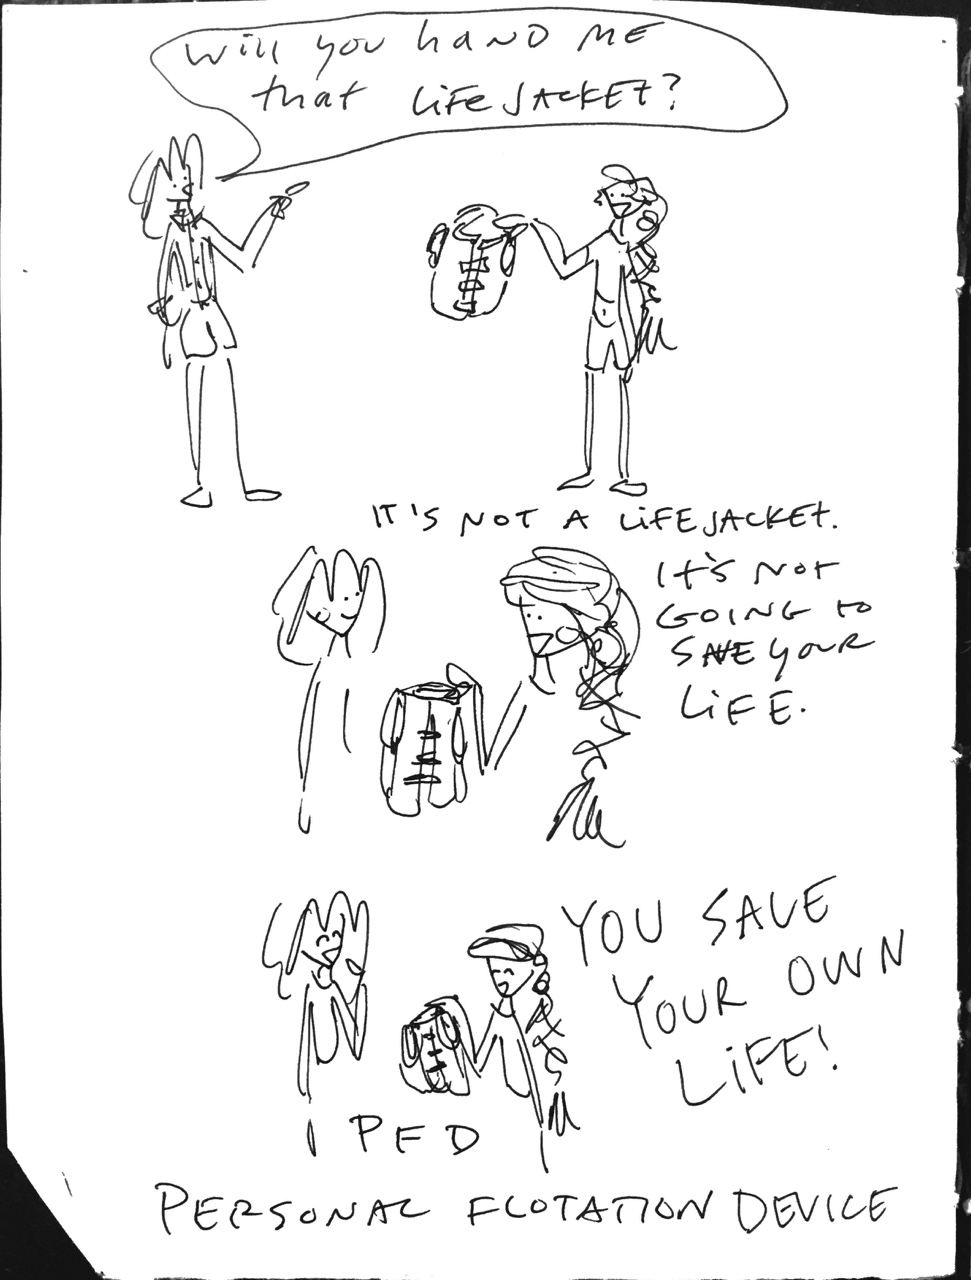 Will you hand me
that life jacket?
It's not a life jacket.
It's not
going to
save your
life.
You save
your own
life!
PFD
Personal Flotation Device